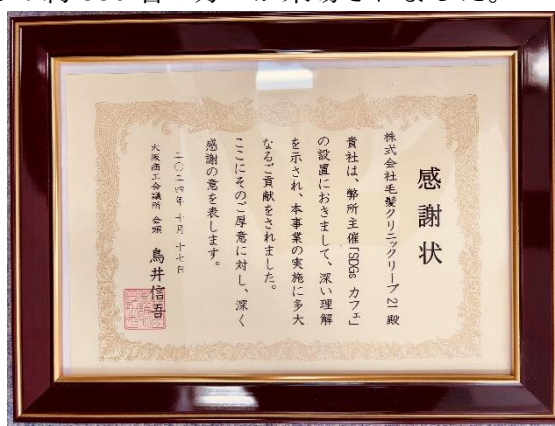 感謝状
株式会社毛髪クリニックリーブ21殿
貴社は、弊所主催「SDGs カフェ」
の設置におきまして、深い理解
を示され、本事業の実施に多大
なるご貢献をされました。
ここにそのご厚意に対し、深く
感謝の意を表します。
二〇二四年 十月 十七日
大阪商工会議所 会頭 鳥井信吾